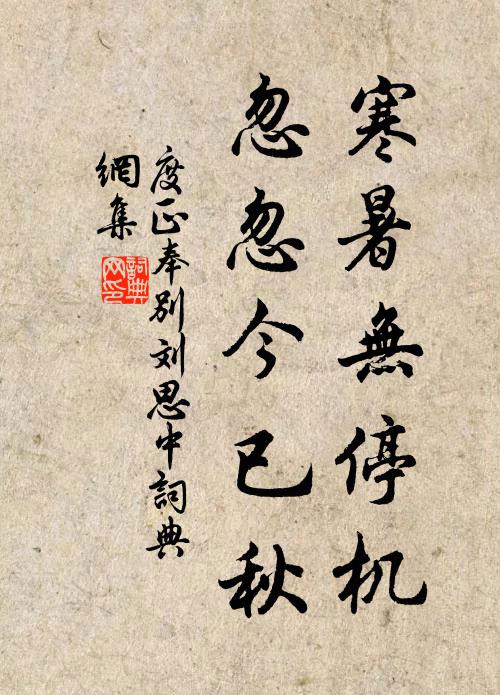 寒暑無停机
忽忽今已秋
度正奉别刘思中詞典
網集
詞典
网印